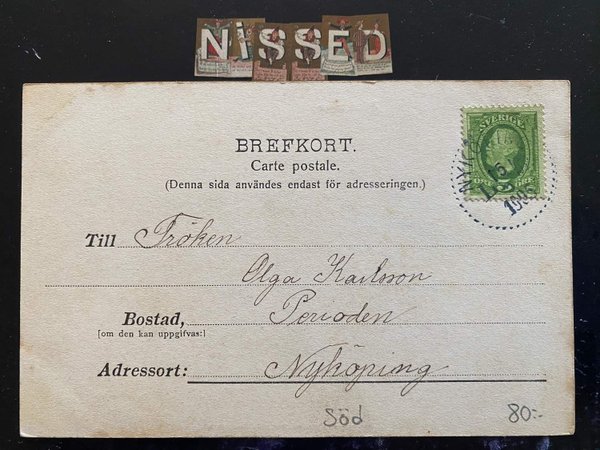 NiSSED
BREFKORT.
Carte postale.
(Denna sida användes endast för adresseringen.)
SVERIGE
5
Till Fröken
Olga Karlsson
Bostad, Perioden
[om den kan uppgifvas:]
Adressort: Nyköping
Söd
80:-